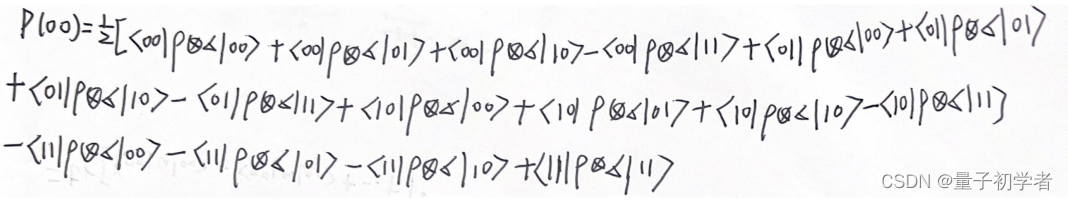 P(00)=½[<00|ρ⊗α|00> + <00|ρ⊗α|01> + <00|ρ⊗α|10> - <00|ρ⊗α|11> + <01|ρ⊗α|00> + <01|ρ⊗α|01>
+ <01|ρ⊗α|10> - <01|ρ⊗α|11> + <10|ρ⊗α|00> + <10|ρ⊗α|01> + <10|ρ⊗α|10> - <10|ρ⊗α|11]
- <11|ρ⊗α|00> - <11|ρ⊗α|01> - <11|ρ⊗α|10> + <11|ρ⊗α|11>
CSDN @量子初学者